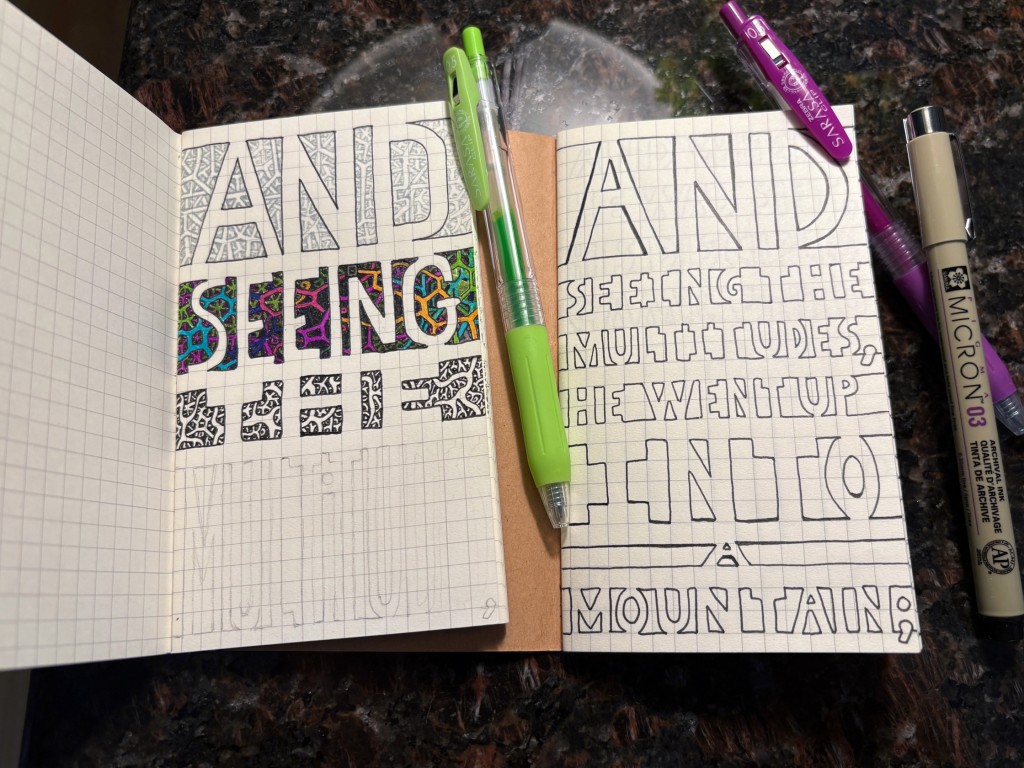 AND
SEEING
THE
MULTITU
9
AND
SEEING THE
MULTITUDES,
HE WENT UP
INTO
A
MOUNTAIN;
ZEBRA
SARASA
CLIP
MICRON 03
ARCHIVAL INK
QUALITÉ D'ARCHIVAGE
TINTA DE ARCHIVE
AP